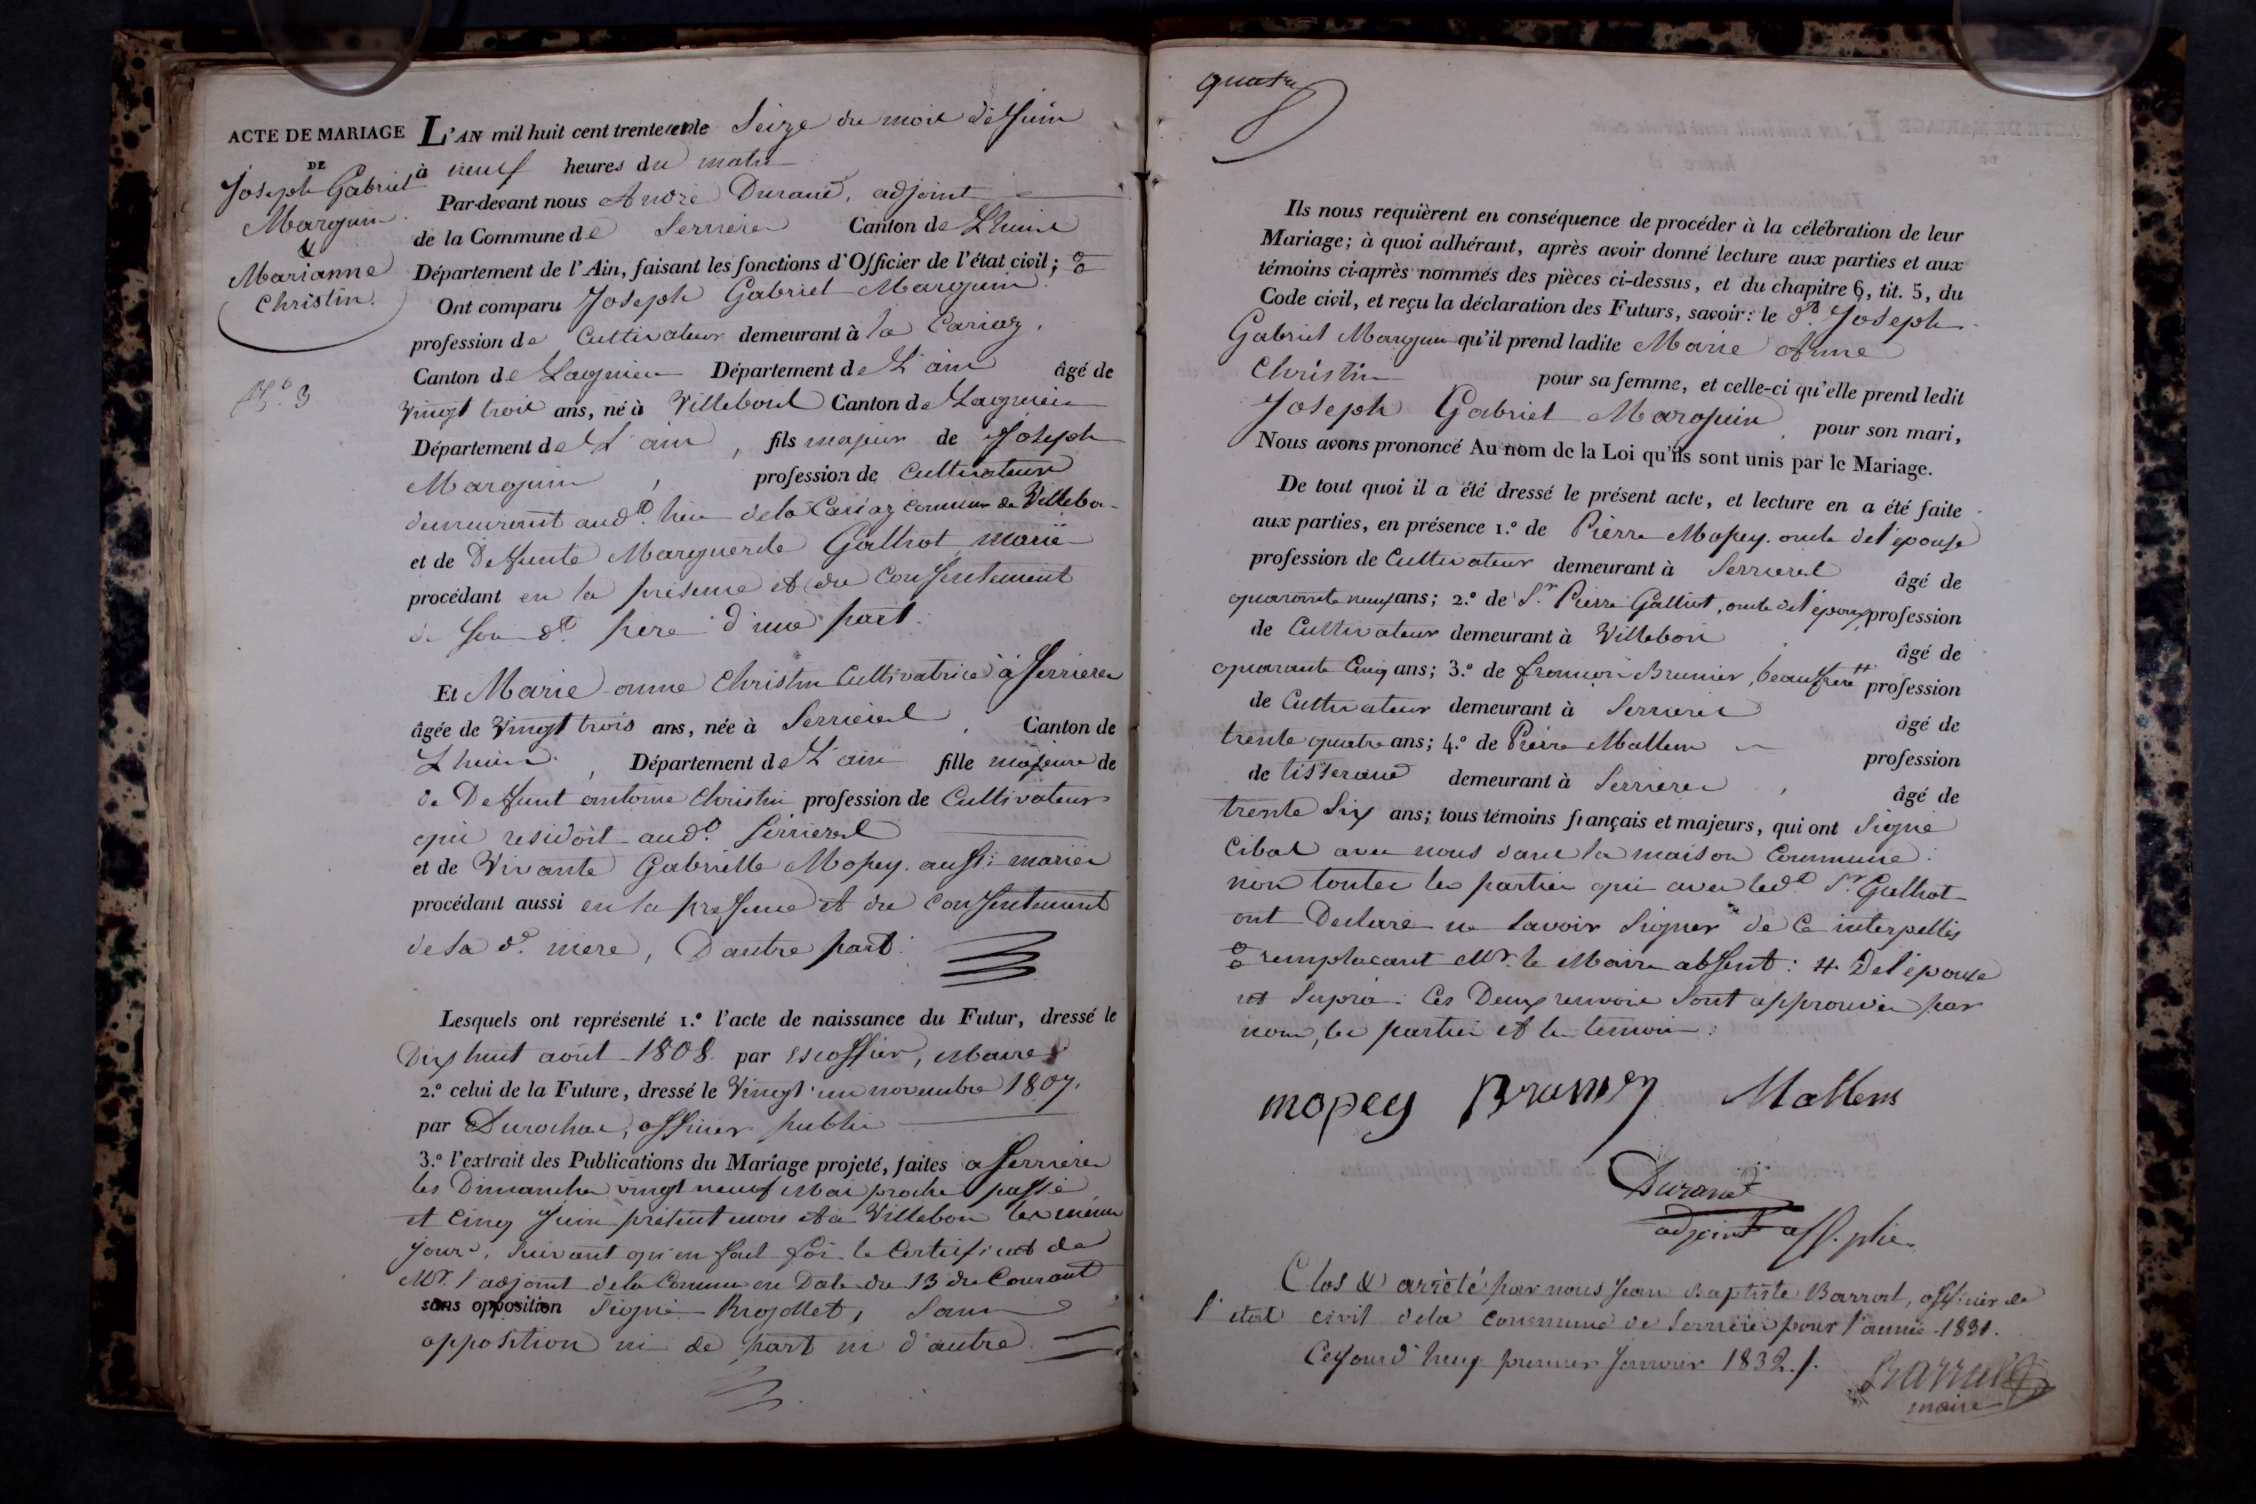 ACTE DE MARIAGE
DE
Joseph Gabriel
Marguin
&
Marianne
Christin.
N.º 3
L'AN mil huit cent trente et le Seize du mois de Juin
à neuf heures du matin
Par-devant nous André Durand, adjoint
de la Commune de Serrieres Canton de Lhuis
Département de l'Ain, faisant les fonctions d'Officier de l'état civil;
Ont comparu Joseph Gabriel Marguin
profession de Cultivateur demeurant à la Cariaz,
Canton de Lagnieu Département de L'ain âgé de
Vingt trois ans, né à Villebois Canton de Lagnieu
Département de L'ain, fils majeur de Joseph
Marguin, profession de Cultivateur
demeurant aud.t lieu de la Cariaz commune de Villebois
et de Deffunte Marguerite Galliot mariés
procédant en la présence et du Consentement
de son d.t pere d'une part.
Et Marie anne Christin Cultivatrice à Serrieres
âgée de Vingt trois ans, née à Serrieres, Canton de
Lhuis, Département de L'ain fille majeure de
de Deffunt antoine Christin profession de Cultivateur
qui residoit aud.t Serrieres
et de Vivante Gabrielle Mopey. aussi mariés
procédant aussi en la presence et du consentement
de sa d.e mere, D'autre part.
Lesquels ont représenté 1.º l'acte de naissance du Futur, dressé le
Dix huit août 1808 par Escoffier, Maire
2.º celui de la Future, dressé le Vingt un novembre 1807,
par Durochat, officier public
3.º l'extrait des Publications du Mariage projeté, faites a Serrieres
les Dimanches vingt neuf Mai proche passé
et cinq Juin présent mois et à Villebois les mêmes
jours, suivant qu'en fait foi le Certificat de
Mr. l'adjoint de la Commune en Date du 13 du Courant
sans opposition Signé Brojollet, Sans
opposition ni de part ni d'autre
quatre
Ils nous requièrent en conséquence de procéder à la célébration de leur
Mariage; à quoi adhérant, après avoir donné lecture aux parties et aux
témoins ci-après nommés des pièces ci-dessus, et du chapitre 6, tit. 5, du
Code civil, et reçu la déclaration des Futurs, savoir: le d.t Joseph
Gabriel Marguin qu'il prend ladite Marie Anne
Christin pour sa femme, et celle-ci qu'elle prend ledit
Joseph Gabriel Marguin, pour son mari,
Nous avons prononcé Au nom de la Loi qu'ils sont unis par le Mariage.
De tout quoi il a été dressé le présent acte, et lecture en a été faite
aux parties, en présence 1.º de Pierre Mopey. oncle de l'épouse
profession de Cultivateur demeurant à Serrieres âgé de
quarante neuf ans; 2.º de S.r Pierre Galliot, oncle de l'époux profession
de Cultivateur demeurant à Villebois, âgé de
quarante Cinq ans; 3.º de françois Brunier, beaufrere # profession
de Cultivateur demeurant à Serrieres âgé de
trente quatre ans; 4.º de Pierre Mallem profession
de tisserand demeurant à Serrieres, âgé de
trente Six ans; tous témoins français et majeurs, qui ont Signé
avec nous dans la maison Commune.
non toutes les parties qui avec led.t S.r Galliot
ont Declaré ne Savoir Signer de Ce interpellés
remplacant Mr. le Maire absent: # De l'épouse
ut Supra. Ces Deux renvois Sont approuvés par
nous, les parties et les temoins:
mopey Brunier Mallem
Durand
adjoint off. plic.
Clos & arrêté par nous Jean Baptiste Barral, officier de
l'etat civil de la commune de Serrieres pour l'année 1831.
Cejourd'huy premier Janvier 1832./.
Barral
maire